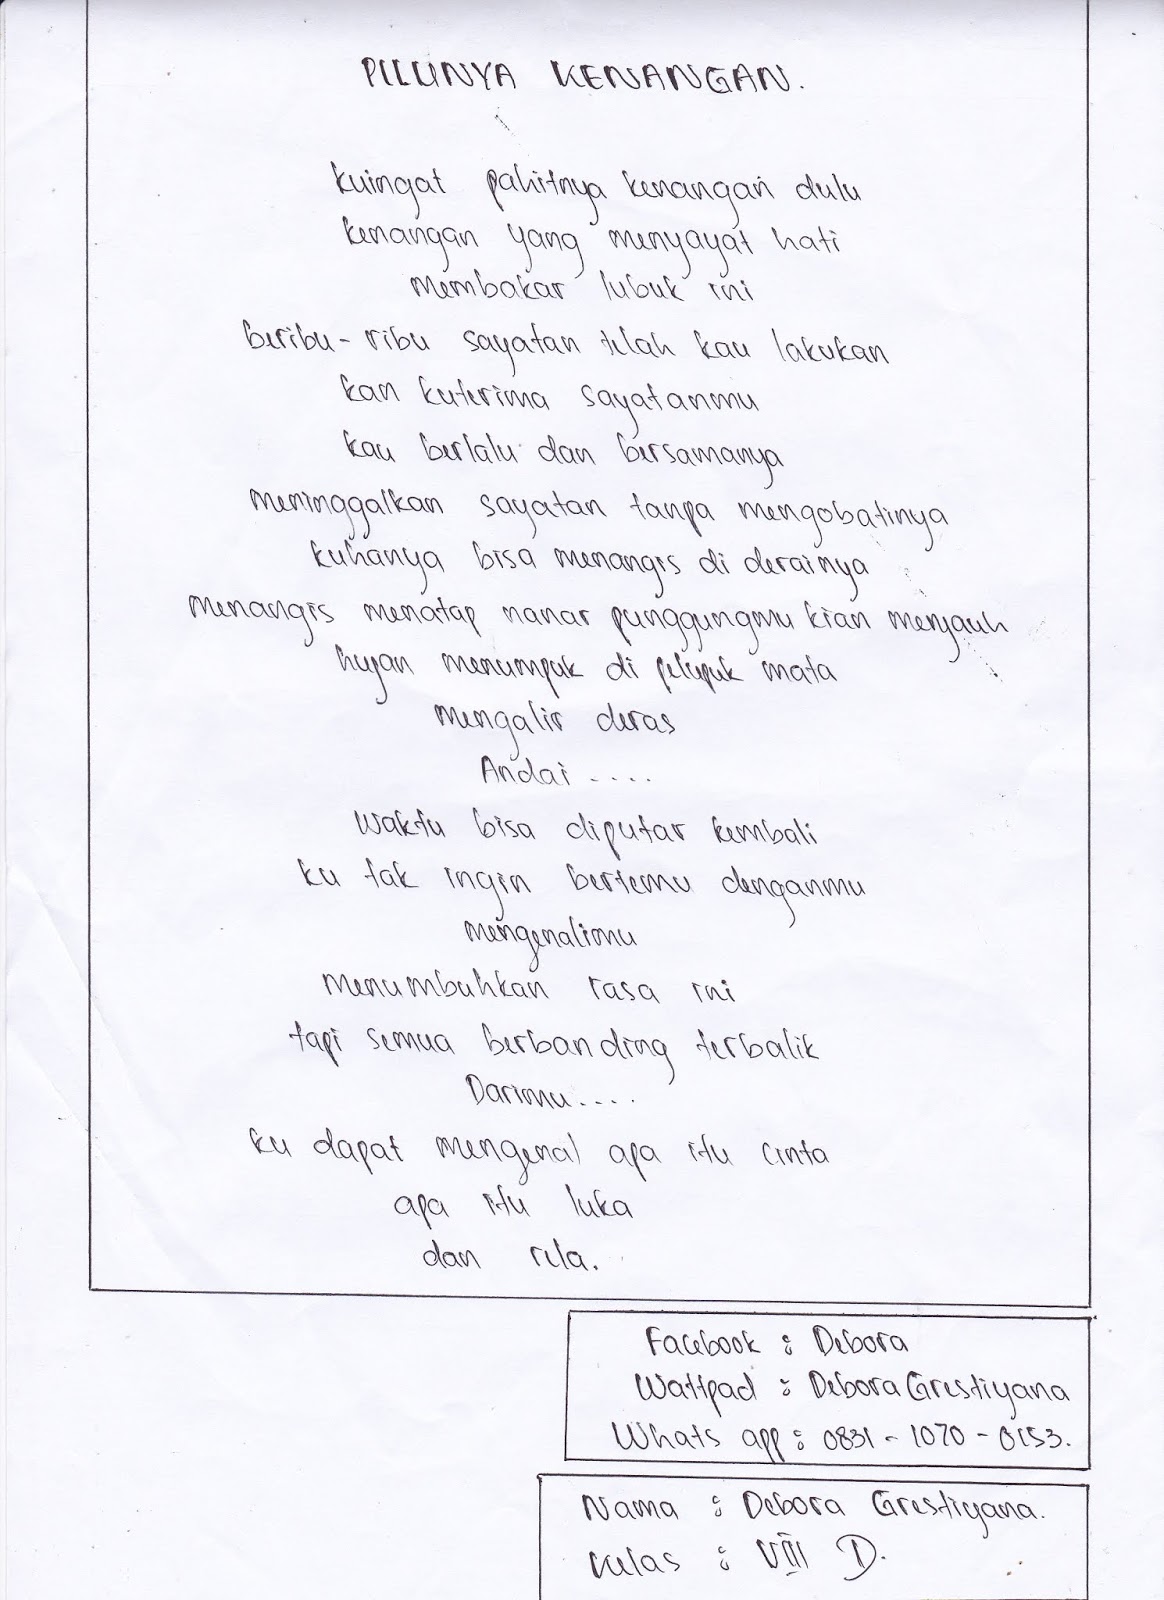 PILUNYA KENANGAN.
kuingat pahitnya kenangan dulu
kenangan yang menyayat hati
membakar lubuk ini
beribu-ribu sayatan telah kau lakukan
kan kuterima sayatanmu
kau berlalu dan bersamanya
meninggalkan sayatan tanpa mengobatinya
kuhanya bisa menangis di derainya
menangis menatap nanar punggungmu kian menjauh
hujan menumpuk di pelupuk mata
mengalir deras
Andai ....
waktu bisa diputar kembali
ku tak ingin bertemu denganmu
mengenalimu
menumbuhkan rasa ini
tapi semua berbanding terbalik
Darimu....
ku dapat mengenal apa itu cinta
apa itu luka
dan rela.
Facebook : Debora
Wattpad : Debora Grestiyana
Whats app : 0831 - 1070 - 0153.
Nama : Debora Grestiyana.
Kelas : VIII D.